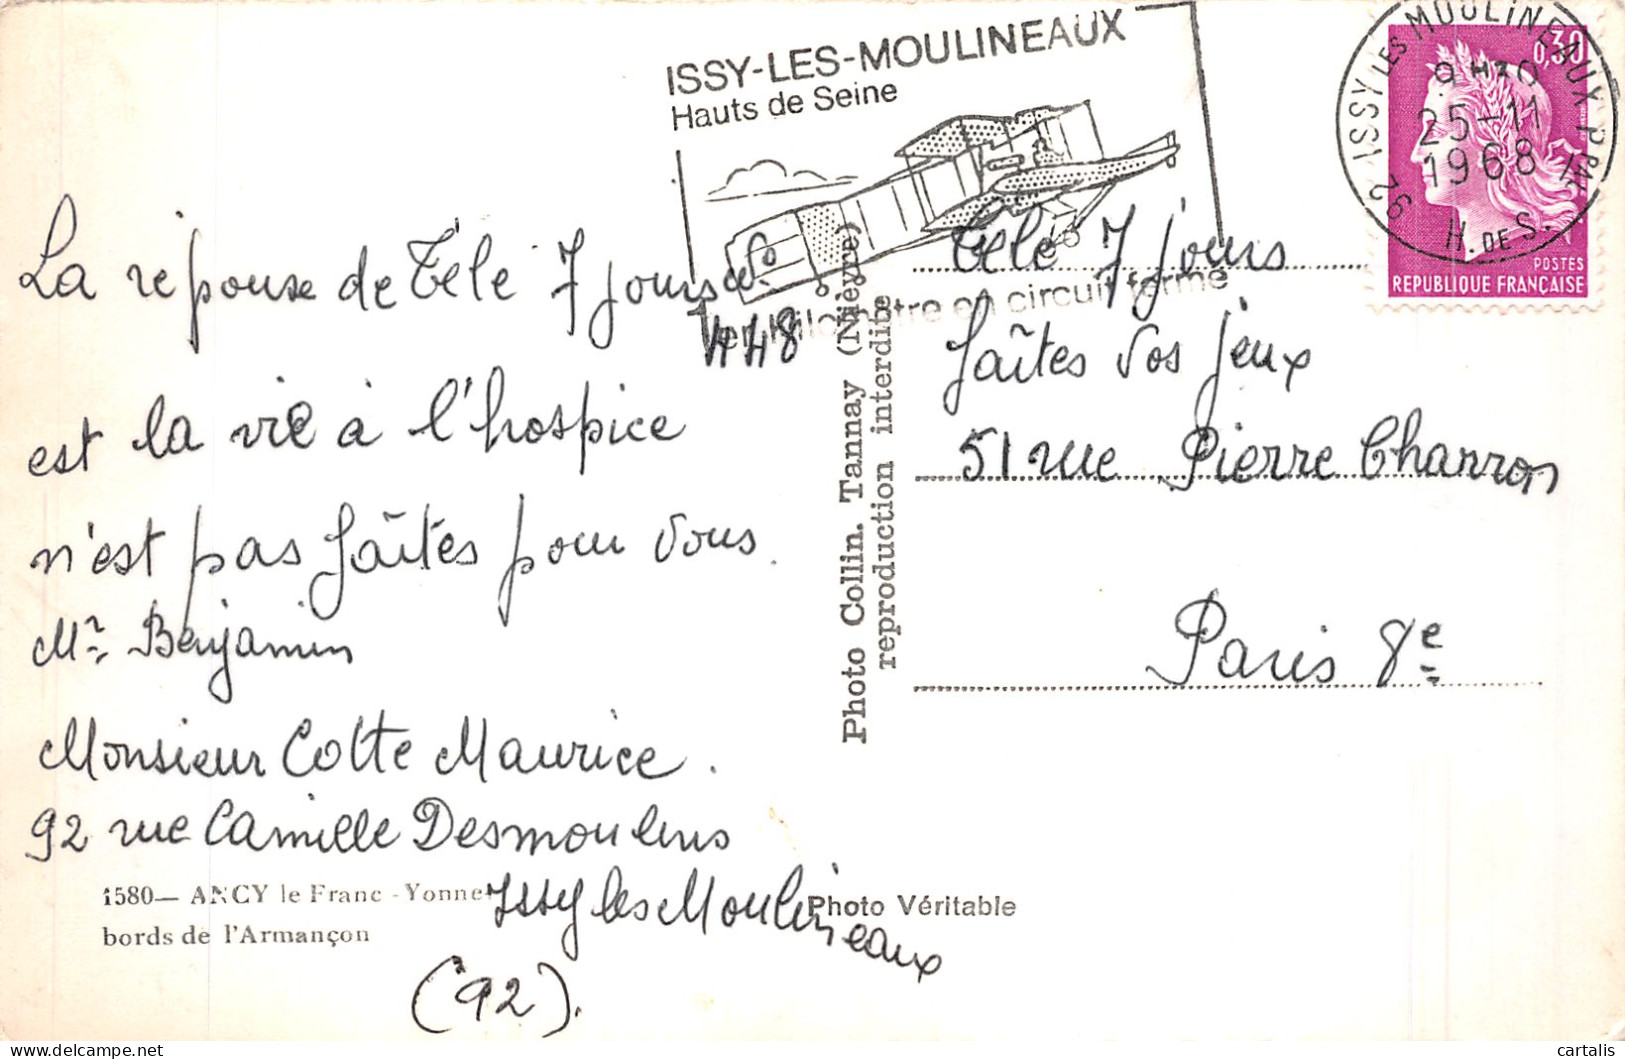 ISSY-LES-MOULINEAUX
Hauts de Seine
1er kilomètre en circuit fermé
92 ISSY LES MOULINEAUX PPAL
9H30
25-11
1968
H. DE S.
0,30
POSTES
REPUBLIQUE FRANÇAISE
La réponse de Télé 7 jours
448
est la vie à l'hospice
n'est pas faîtes pour vous.
Mr Benjamin
Monsieur Cotte Maurice.
92 rue Camille Desmoulins
Issy les Moulineaux
(92).
1580— ANCY le Franc - Yonne
bords de l'Armançon
Photo Véritable
Photo Collin. Tannay (Nièvre)
reproduction interdite
Télé 7 jours
faîtes vos jeux
51 rue Pierre Charron
Paris 8e
cartalis